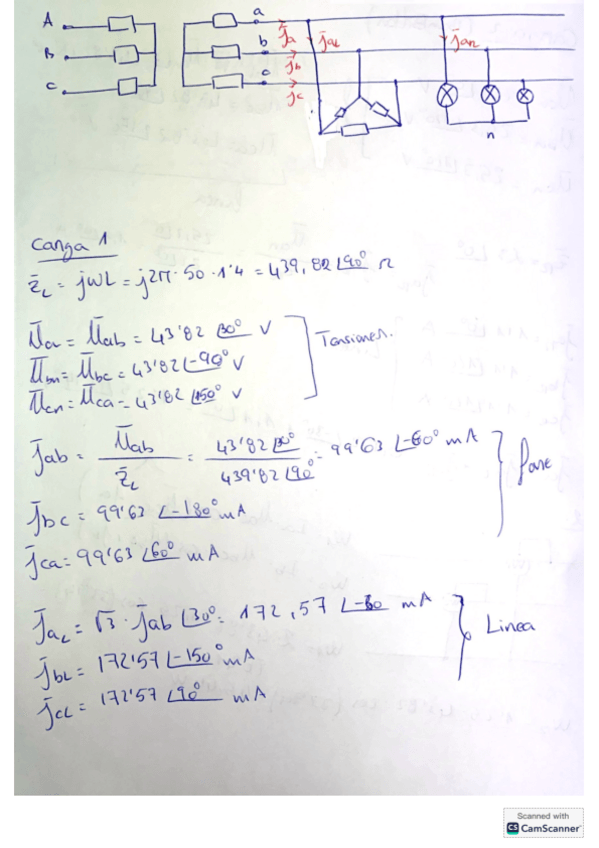 A
B
C
a
b
c
J̄a
J̄b
J̄c
J̄aL
J̄an
n
Carga 1
Z̄L = jWL = j2π·50·1'4 = 439,82 ∠90° Ω
Ūan = Ūab = 43'82 ∠30° V
Ūbn = Ūbc = 43'82 ∠-90° V
Ūcn = Ūca = 43'82 ∠150° V
Tensiones.
J̄ab = Ūab / Z̄L = 43'82 ∠30° / 439'82 ∠90° = 99'63 ∠-60° mA
J̄bc = 99'63 ∠-180° mA
J̄ca = 99'63 ∠60° mA
fase
J̄aL = √3 · J̄ab ∠30° = 172,57 ∠-30 mA
J̄bL = 172'57 ∠-150° mA
J̄cL = 172'57 ∠90° mA
Linea
Scanned with
CS CamScanner